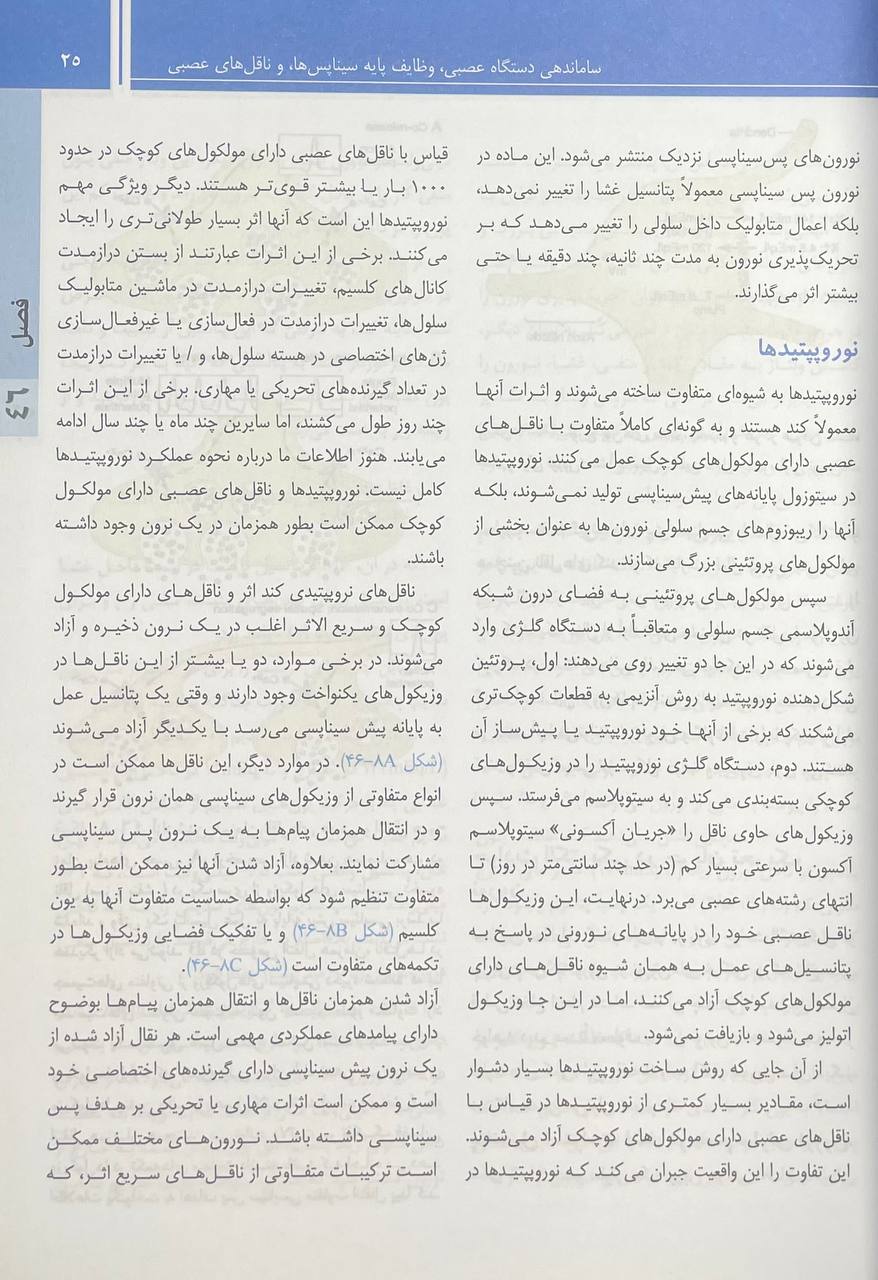 ساماندهی دستگاه عصبی، وظایف پایه سیناپس‌ها، و ناقل‌های عصبی
۲۵
فصل
۴۶
نورون‌های پس‌سیناپسی نزدیک منتشر می‌شود. این ماده در
نورون پس سیناپسی معمولاً پتانسیل غشا را تغییر نمی‌دهد،
بلکه اعمال متابولیک داخل سلولی را تغییر می‌دهد که بر
تحریک‌پذیری نورون به مدت چند ثانیه، چند دقیقه یا حتی
بیشتر اثر می‌گذارند.
نوروپپتیدها
نوروپپتیدها به شیوه‌ای متفاوت ساخته می‌شوند و اثرات آنها
معمولاً کند هستند و به گونه‌ای کاملاً متفاوت با ناقل‌های
عصبی دارای مولکول‌های کوچک عمل می‌کنند. نوروپپتیدها
در سیتوزول پایانه‌های پیش‌سیناپسی تولید نمی‌شوند، بلکه
آنها را ریبوزوم‌های جسم سلولی نورون‌ها به عنوان بخشی از
مولکول‌های پروتئینی بزرگ می‌سازند.
سپس مولکول‌های پروتئینی به فضای درون شبکه
آندوپلاسمی جسم سلولی و متعاقباً به دستگاه گلژی وارد
می‌شوند که در این جا دو تغییر روی می‌دهند: اول، پروتئین
شکل‌دهنده نوروپپتید به روش آنزیمی به قطعات کوچک‌تری
می‌شکند که برخی از آنها خود نوروپپتید یا پیش‌ساز آن
هستند. دوم، دستگاه گلژی نوروپپتید را در وزیکول‌های
کوچکی بسته‌بندی می‌کند و به سیتوپلاسم می‌فرستد. سپس
وزیکول‌های حاوی ناقل را «جریان آکسونی» سیتوپلاسم
آکسون با سرعتی بسیار کم (در حد چند سانتی‌متر در روز) تا
انتهای رشته‌های عصبی می‌برد. درنهایت، این وزیکول‌ها
ناقل عصبی خود را در پایانه‌های نورونی در پاسخ به
پتانسیل‌های عمل به همان شیوه ناقل‌های دارای
مولکول‌های کوچک آزاد می‌کنند، اما در این جا وزیکول
اتولیز می‌شود و بازیافت نمی‌شود.
از آن جایی که روش ساخت نوروپپتیدها بسیار دشوار
است، مقادیر بسیار کمتری از نوروپپتیدها در قیاس با
ناقل‌های عصبی دارای مولکول‌های کوچک آزاد می‌شوند.
این تفاوت را این واقعیت جبران می‌کند که نوروپپتیدها در
قیاس با ناقل‌های عصبی دارای مولکول‌های کوچک در حدود
۱۰۰۰ بار یا بیشتر قوی‌تر هستند. دیگر ویژگی مهم
نوروپپتیدها این است که آنها اثر بسیار طولانی‌تری را ایجاد
می‌کنند. برخی از این اثرات عبارتند از بستن درازمدت
کانال‌های کلسیم، تغییرات درازمدت در ماشین متابولیک
سلول‌ها، تغییرات درازمدت در فعال‌سازی یا غیرفعال‌سازی
ژن‌های اختصاصی در هسته سلول‌ها، و / یا تغییرات درازمدت
در تعداد گیرنده‌های تحریکی یا مهاری. برخی از این اثرات
چند روز طول می‌کشند، اما سایرین چند ماه یا چند سال ادامه
می‌یابند. هنوز اطلاعات ما درباره نحوه عملکرد نوروپپتیدها
کامل نیست. نوروپپتیدها و ناقل‌های عصبی دارای مولکول
کوچک ممکن است بطور همزمان در یک نرون وجود داشته
باشند.
ناقل‌های نروپپتیدی کند اثر و ناقل‌های دارای مولکول
کوچک و سریع الاثر اغلب در یک نرون ذخیره و آزاد
می‌شوند. در برخی موارد، دو یا بیشتر از این ناقل‌ها در
وزیکول‌های یکنواخت وجود دارند و وقتی یک پتانسیل عمل
به پایانه پیش سیناپسی می‌رسد با یکدیگر آزاد می‌شوند
(شکل ۴۶–۸A). در موارد دیگر، این ناقل‌ها ممکن است در
انواع متفاوتی از وزیکول‌های سیناپسی همان نرون قرار گیرند
و در انتقال همزمان پیام‌ها به یک نرون پس سیناپسی
مشارکت نمایند. بعلاوه، آزاد شدن آنها نیز ممکن است بطور
متفاوت تنظیم شود که بواسطه حساسیت متفاوت آنها به یون
کلسیم (شکل ۴۶–۸B) و یا تفکیک فضایی وزیکول‌ها در
تکمه‌های متفاوت است (شکل ۴۶–۸C).
آزاد شدن همزمان ناقل‌ها و انتقال همزمان پیام‌ها بوضوح
دارای پیامدهای عملکردی مهمی است. هر نقال آزاد شده از
یک نرون پیش سیناپسی دارای گیرنده‌های اختصاصی خود
است و ممکن است اثرات مهاری یا تحریکی بر هدف پس
سیناپسی داشته باشد. نورون‌های مختلف ممکن
است ترکیبات متفاوتی از ناقل‌های سریع اثر، که